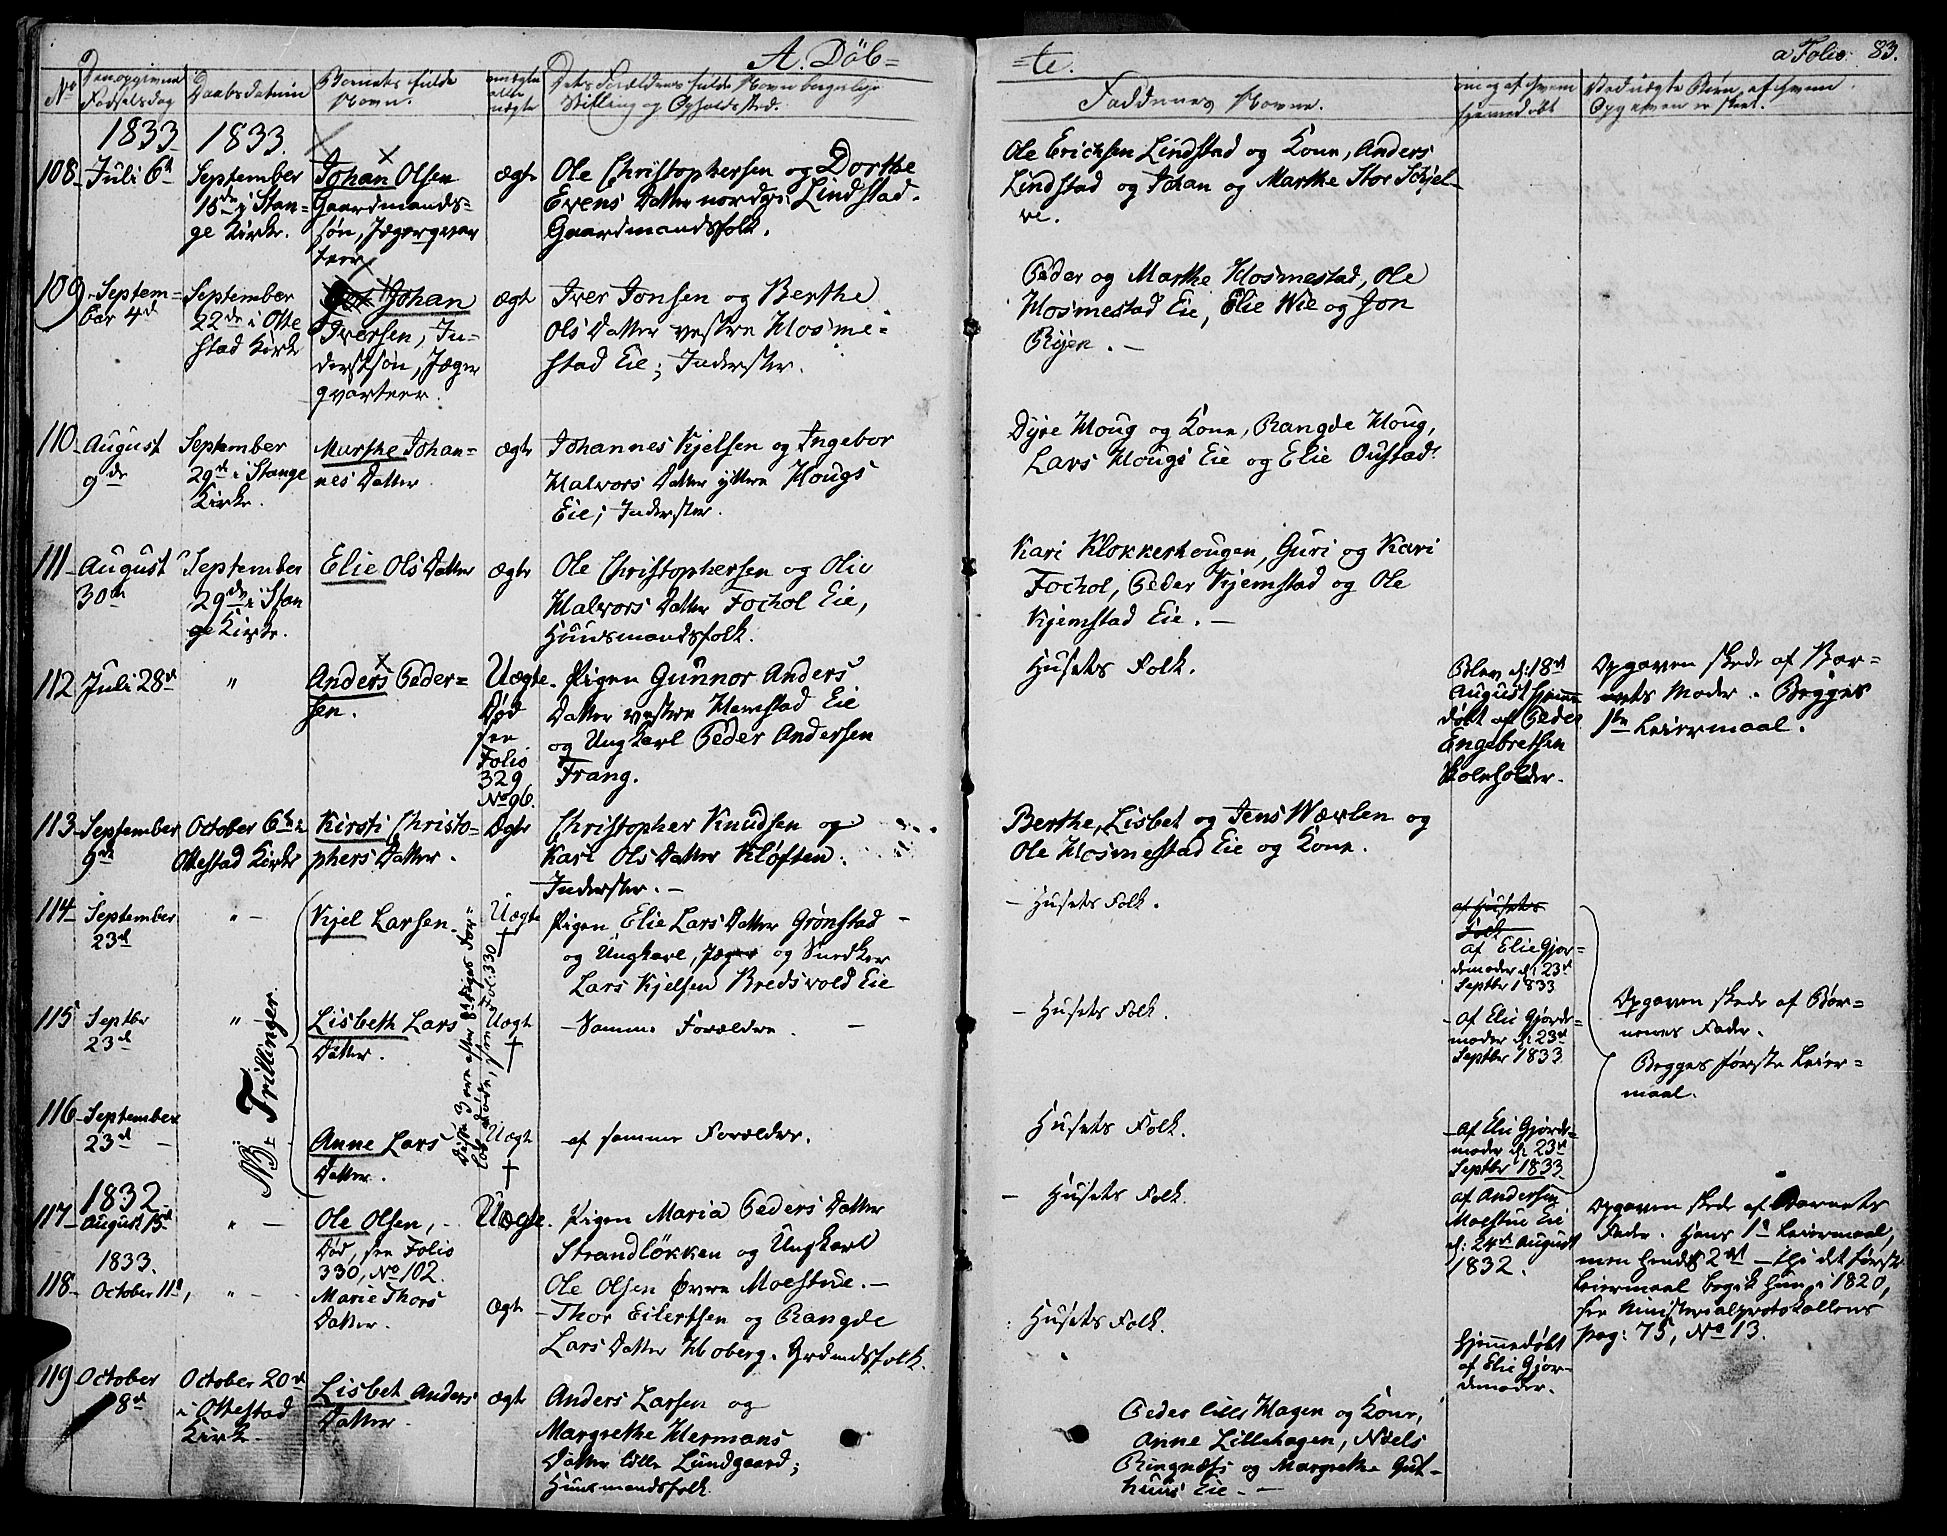 A. Döb=
=te.
a Folio. 83.
No
Den opgivne Fødselsdag
Daabsdatum
Barnets fulde Navn.
ægte eller uægte
Dets Forældrenes fulde Navn
Stilling og Opholdssted.
Faddernes Navne.
1833. 1833.
108. Juli 6te
September
15de i Stan=
ge Kirke.
Johan Olsen
Gaardmands=
søn, Jægerqvar
teer
ægte
Ole Christophersen og Dorthe
Evens Datter nordre Lindstad.
Gaardmandsfolk.
Ole Ericksen Lindstad og Kone, Anders
Lindstad og Johan og Marthe Stor Schjel=
ve.
109. Septem=
ber 4de
September
22de i Otte
stad Kirke
Johan
Iversen, In=
derstsøn, Jæger
qvarteer.
ægte
Iver Jonsen og Berthe
Ols Datter vestre Hosme=
stad Eie; Inderster.
Peder og Marthe Hosmestad, Ole
Hosmestad Eie, Elie Wie og Jon
Rÿen. —
110. August
9de
September
29de i Stange
Kirke.
Marthe Johan=
nes Datter
ægte
Johannes Kjelsen og Ingebor
Halvors Datter yttre Hougs
Eie; Inderster.
Dyre Houg og Kone, Rangde Houg,
Lars Hougs Eie og Elie Oustad.
111. August
30te
September
29de i Stan
ge Kirke.
Elie Ols Datter
ægte
Ole Christophersen og Olie
Halvors Datter Fochol Eie,
Huusmandsfolk.
Kari Klokkerhougen, Guri og Kari
Fochol, Peder Kjemstad og Ole
Kjemstad Eie. —
112. Juli 28de
"
Anders Peder=
sen.
Uægte.
Død
see
Folio
329
No 96.
Pigen Gunnor Anders
Datter vestre Hemstad Eie
og Ungkarl Peder Andersen
Frang.
Husets Folk.
Blev d: 18de
August hjemme
døbt af Peder
Engebretsen
Skoleholder.
Opgaven skede af Bar=
nets Moder. Begges
1ste Leiermaal.
113. September
9de
October 6te i
Ottestad Kirke
Kirsti Christo=
phers Datter.
Ægte
Christopher Knudsen og
Kari Ols Datter Kløften.
Inderster. —
Berthe, Lisbet og Jens Wærlen og
Ole Hosmestad Eie og Kone.
114. September
23de
" —
Kjel Larsen.
Uægte
†
Pigen Elie Lars Datter Grønstad —
og Ungkarl, Jæger og Snedker
Lars Kjelsen Bredsvold Eie
— Husets Folk.
af Husets
Folk
af Elie Gjor=
demoder d: 23de
Septbr 1833
NB. Trillinger.
Disse 3 ere efter Sigende for=
lods døde, see Fol: 330
115. Septbr
23de
" —
Lisbeth Lars
Datter.
Uægte
†
— Samme Forældre. —
— Husets Folk.
— af Elie Gjorde=
moder d: 23de
Septbr 1833
Opgaven skede af Bør=
nenes Fader.
Begges første Leier=
maal.
116. September
23de —
Anne Lars
Datter.
Uægte
†
af samme Forældre.
Husets Folk.
— af Elie Gjorde=
moder d: 23de
Septbr 1833
1832.
117. August 15de
" —
Ole Olsen, —
Død, see Folio
330, No 102.
Uægte.
Pigen Maria Peders Datter
Strandløkken og Ungkarl
Ole Olsen Övre Moestue. —
— Husets Folk.
af Andersen
Moestue Eie
d: 24de August
1832.
Opgaven skede af Barnets
Fader. Hans 1ste Leiermaal,
men hendes 2det — thi det første
Leiermaal begik hun i 1820,
see Ministerialprotokollens
pag: 75, No 13.
1833.
118. October 11te,
" —
Marie Thors
Datter.
ægte
— Thor Eilertsen og Rangde
Lars Datter Hoberg.
Husets Folk.
Hjemmedøbt
af Elie Gjor=
demoder.
119 October
8de
October 20de
i Ottestad
Kirke.
Lisbet Anders
Datter.
ægte
Anders Larsen og
Margrethe Hermans
Datter lille Lundgaard;
Huusmandsfolk.
Peder lille Hagen og Kone,
Anne Lillehagen, Niels
Ringnæss og Margrethe Gut=
huus Eie. —